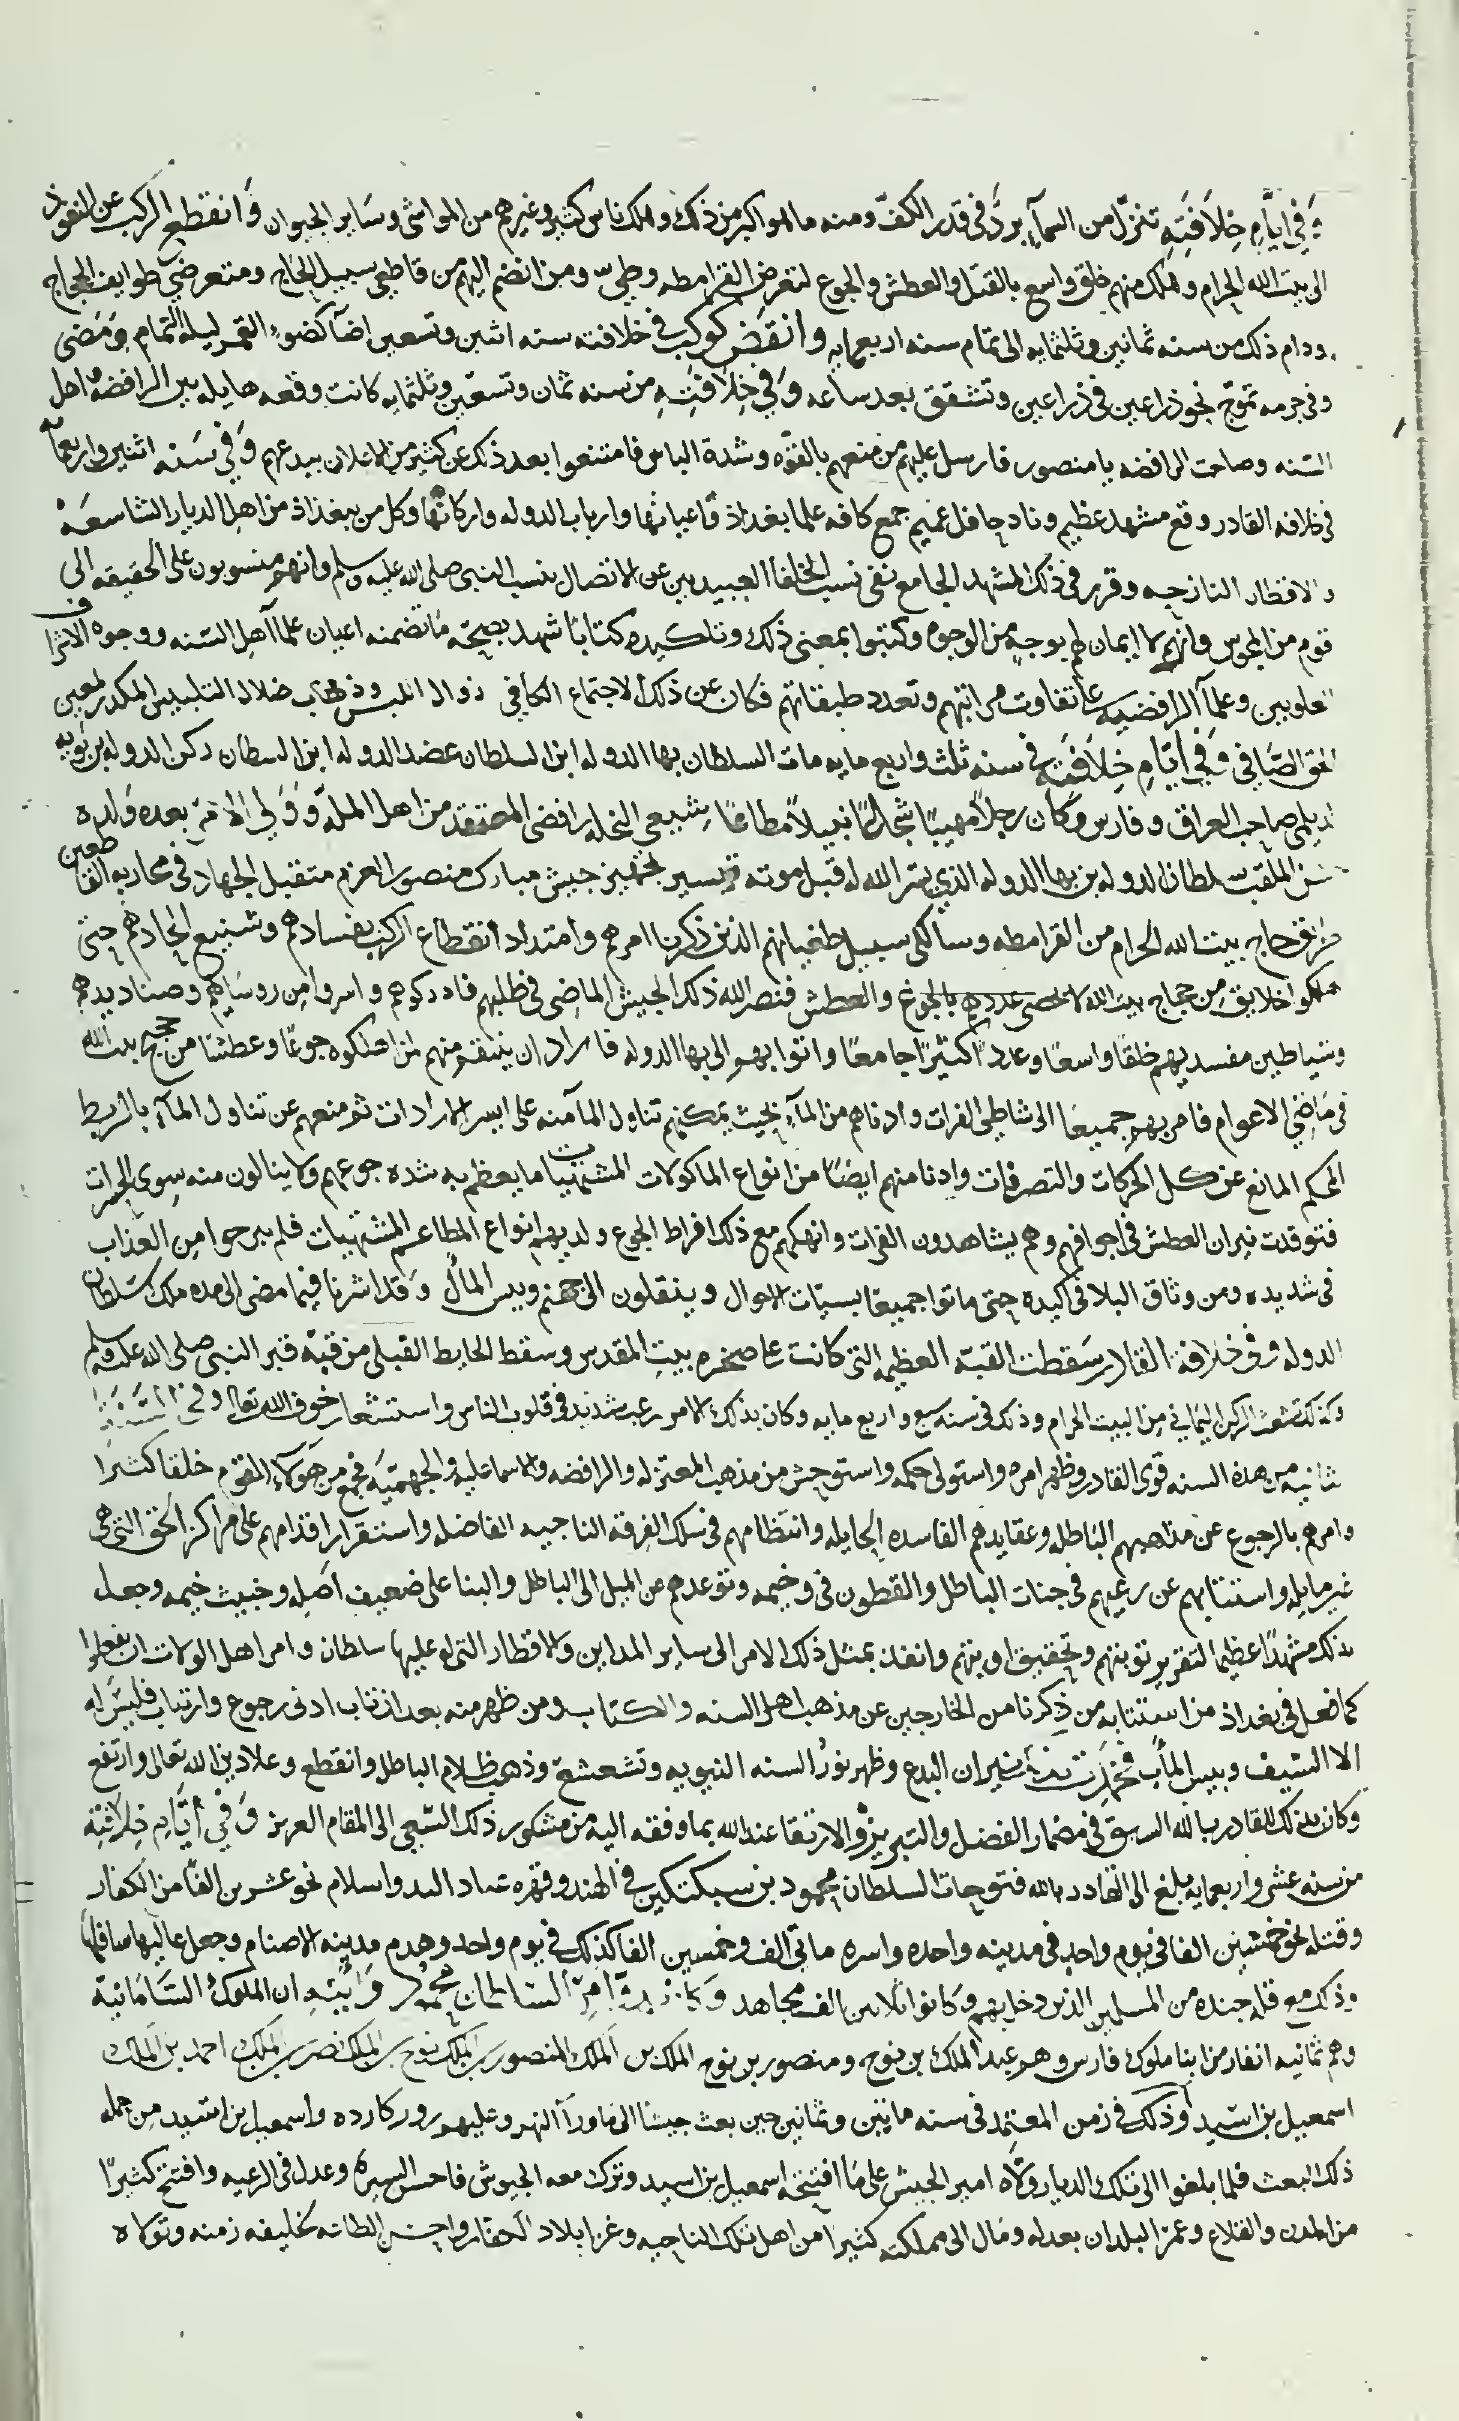 وَفي ايَّامِ خِلاَفَتِهِ تنزّل من السمآءِ بَرَدٌ في قدر الكفّ ومنه ما هو اكبر من ذلك وهلك ناس كثير وغيرهم من المواشي وسَاير الحيوان وَانقطع الركب عن النفوذ
الى بيت الله الحرام وهلك منهم خلق واسع بالقتل والعطش والجوع لتعرض القرامطه وطي ومن انضم اليهم من قاطعي سبيل الحاج ومتعرضي طوايف الحجاج
ودام ذلك من سنه ثمانين وثلثمايه الى تمام سنه اربعمايه وانقضّ كوكب في خلافته سنه اثنين وتسعين اضآ كضوءِ القمر ليله التمام وَمَضى
وفي جرمه تموّج نحو ذراعين في ذراعين وتشقق بعد ساعه وَفي خِلاَفَتِهِ من سنه ثمان وتسعين وثلثمايه كانت وقعه هايله بين الرافضه واهل
السّنه وصاحت الرافضه يا منصور فارسل عليهم من منعهم بالقوّه وشدة الباس فامتنعوا بعد ذلك عن كثير من الاعلان ببدعهم وَفي سَنه اثنين واربعمآيه
في خلافه القادر وقع مشهد عظيم وناد حافل عميم جمع كافه علما بغداذ واعيانها وارباب الدوله واركانها وكل من ببغداذ من اهل الديار الشاسعَهْ
والاقطار النازحه وقرر في ذلك المشهد الجامع نفى نسب الخلفآ العبيديين عن الاتصال بنسب النبي صلى الله عليه وسلم وانهم منسوبون على الحقيقه الى
قوم من المجوس وانهم لا ايمان لهم بوجهٍ من الوجوه وكتبوا بمعنى ذلك وتاكيده كتابًا شهد بصحّة ما تضمنه اعيان علمآ اهل السّنه ووجوه الاشراف
العلويين وعلمآ الرافضيه على تفاوت مراتبهم وتعدد طبقاتهم فكان عن ذلك الاجتماع الكافي زوال اللبس وذهاب ضلال التلبيس المكدر لمعين
الحق الصّافي وَفي أيّامِ خِلاَفَتِهِ في سنه ثلث واربع مايه مات السلطان بهآ الدوله ابن السلطان عضد الدوله ابن السلطان ركن الدوله بن بُويه
الديلمي صاحب العراق وفارس وكان رجلاً مهيبًا شجاعًا نبيلاً مطاعًا شيعي النحله رافضي المعتقد من اهل الملّه وَوَلي الامر بعده وَلده
الملقب سلطان الدوله بن بهآ الدوله الذي يسّر الله له قبل موته تيسير تجهيز جيش مبارك منصور العزم متقبل الجهاد في محاربه القاطعين
طرق حاج بيت الله الحرام من القرامطه وسالكي سبيل طغيانهم الذين ذكرنا امرهم وامتداد انقطاع الركب بفسادهم وشنيع الحادهم حتى
هلكوا خلايق من حجاج بيت الله لا تحصى عددهم بالجوع والعطش فنصر الله ذلك الجيش الماضي في طلبهم فادركوهم واسروا من روسَايهم وصناديدهم
وشياطين مفسديهم خلقًا واسعًا وعددًا كثيرًا جامعًا واتوا بهم الى بهآ الدوله فاراد ان ينتقم منهم لمن اهلكوه جوعًا وعطشًا من حجيج بيت الله
في مَاضي الاعوام فامر بهم جميعًا الى شاطي الفرات وادناهم من المآء بحيث يمكنهم تناول المآ منه على ايسر الارادات ثم منعهم عن تناول المآء بالربط
المحكم المانع عن كل الحركات والتصرفات وادنا منهم ايضًا من انواع الماكولات المشتهيات ما يعظم به شده جوعهم ولا ينالون منه سوى الحسرات
فتوقدت نيران العطش في اجوافهم وهم يشاهدون الفرات وانهكهم مع ذلك افراط الجوع ولديهم انواع المطاعم المشتهيات فلم يبرحوا من العذاب
في شديده ومن وثاق البلا في اكيده حتى ماتوا جميعًا بسيّات الاحوال وينقلون الى جهنم وبيس المال وَقد اشرنا فيما مضى الى مده ملك سلطان
الدوله وفي خلافة القادر سَقطت القبّه العظيمه التي كانت على صخره بيت المقدس وسقط الحايط القبلي من قبّه قبر النبي صلى الله عليه وسلم
وكذلك تشعث الركن اليماني من البيت الحرام وذلك في سنه سبع واربع مايه وكان بذلك الامر رعب شديد في قلوب الناس واستشعار خوف الله تعالى وفي
ثانيه من هذه السنه قوى القادر وظهر امره واستولى حكمه واستوحش من مذهب المعتزله والرافضه والاسماعليه والجهميّه فجمع من هَؤلآءِ القوم خلقا كثيرًا
وامرهم بالرجوع عن مذاهبهم الباطله وعقايدهم الفاسده الحايله وانتظامهم في سلك الفرقه الناجيه الفاضله واستقرار اقدامهم على مراكز الحق التي هي
غير مايله واستتابهم عن رعيهم في جنات الباطل والقطون في وخيمه وتوعدهم من الميل الى الباطل والبنا على ضعيف اصله وخبيث خيمه وجعل
بذلك مشهدًا عظيما لتقرير توبتهم وتحقيق اوبتهم وانفذ بمثل ذلك الامر الى ساير المداين والاقطار التي له عليها سلطان وامر اهل الولات ان يفعلوا
كما فعل في بغداذ من استتابه من ذكرنا من الخارجين عن مذهب اهل السنه والكتاب ومن ظهر منه بعد ان تاب ادنى رجوع وارتياب فليسَ له
الا السّيف وبيس المآب فخمدت بذلك نيران البدع وظهر نورُ السنه النبويه وتشعشع وذهب ظلام الباطل وانقطع وعلا دين الله تعالى وارتفع
وكان بذلك للقادر بالله السبق في مضمار الفضل والتبريز والارتقا عند الله بما وفقه اليه من مشكور ذلك السّعي الى المقام العزيز وَفي أيّامِ خِلاَفَتِهِ
من سنه عشر واربعمايه بلغ الى القادر بالله فتوحات السلطان محمود بن سبكتكين في الهند وقهره عباد البد واسلام نحو عشرين الفًا من الكفار
وقتله نحو خمسين الفا في يوم واحد في مدينه واحده واسره مائي الف وخمسين الفا كذلك في يوم واحد وهدم مدينه الاصنام وجعل عاليها سافلها
وذلك مع قله جنده من المسلمين الذين دخل بهم وكانوا ثلاثين الف مجاهد وَكان امر السلطان محمود وَابيْه ان الملوك السَّامَانيّة
وهم ثمانيه انفار من ابنا ملوك فارس وهو عبد الملك بن نوح ومنصور بن نوح الملك بن الملك المنصور بن الملك نوح بن الملك نصر بن الملك احمد بن الملك
اسمعيل بن اسيد وذلك في زمن المعتمد في سنه مايتين وثمانين حين بعث جيشًا الى ما ورآ النهر وعليهم واسمعيل بن اسيد من جمله
ذلك البعث فلما بلغوا الى تلك الديار ولّاه امير الجيش على مَا افتتحه اسمعيل بن اسيد وترك معه الجيوش فاحسن السيره وعدل في الرعيه وافتتح كثيرًا
من المدن والقلاع وعمر البلدان بعدله ومال الى مملكته كثيرا من اهل تلك الناحيه وغزا بلاد الكفار واحسن الطاعه لخليفه زمنه وتولاه